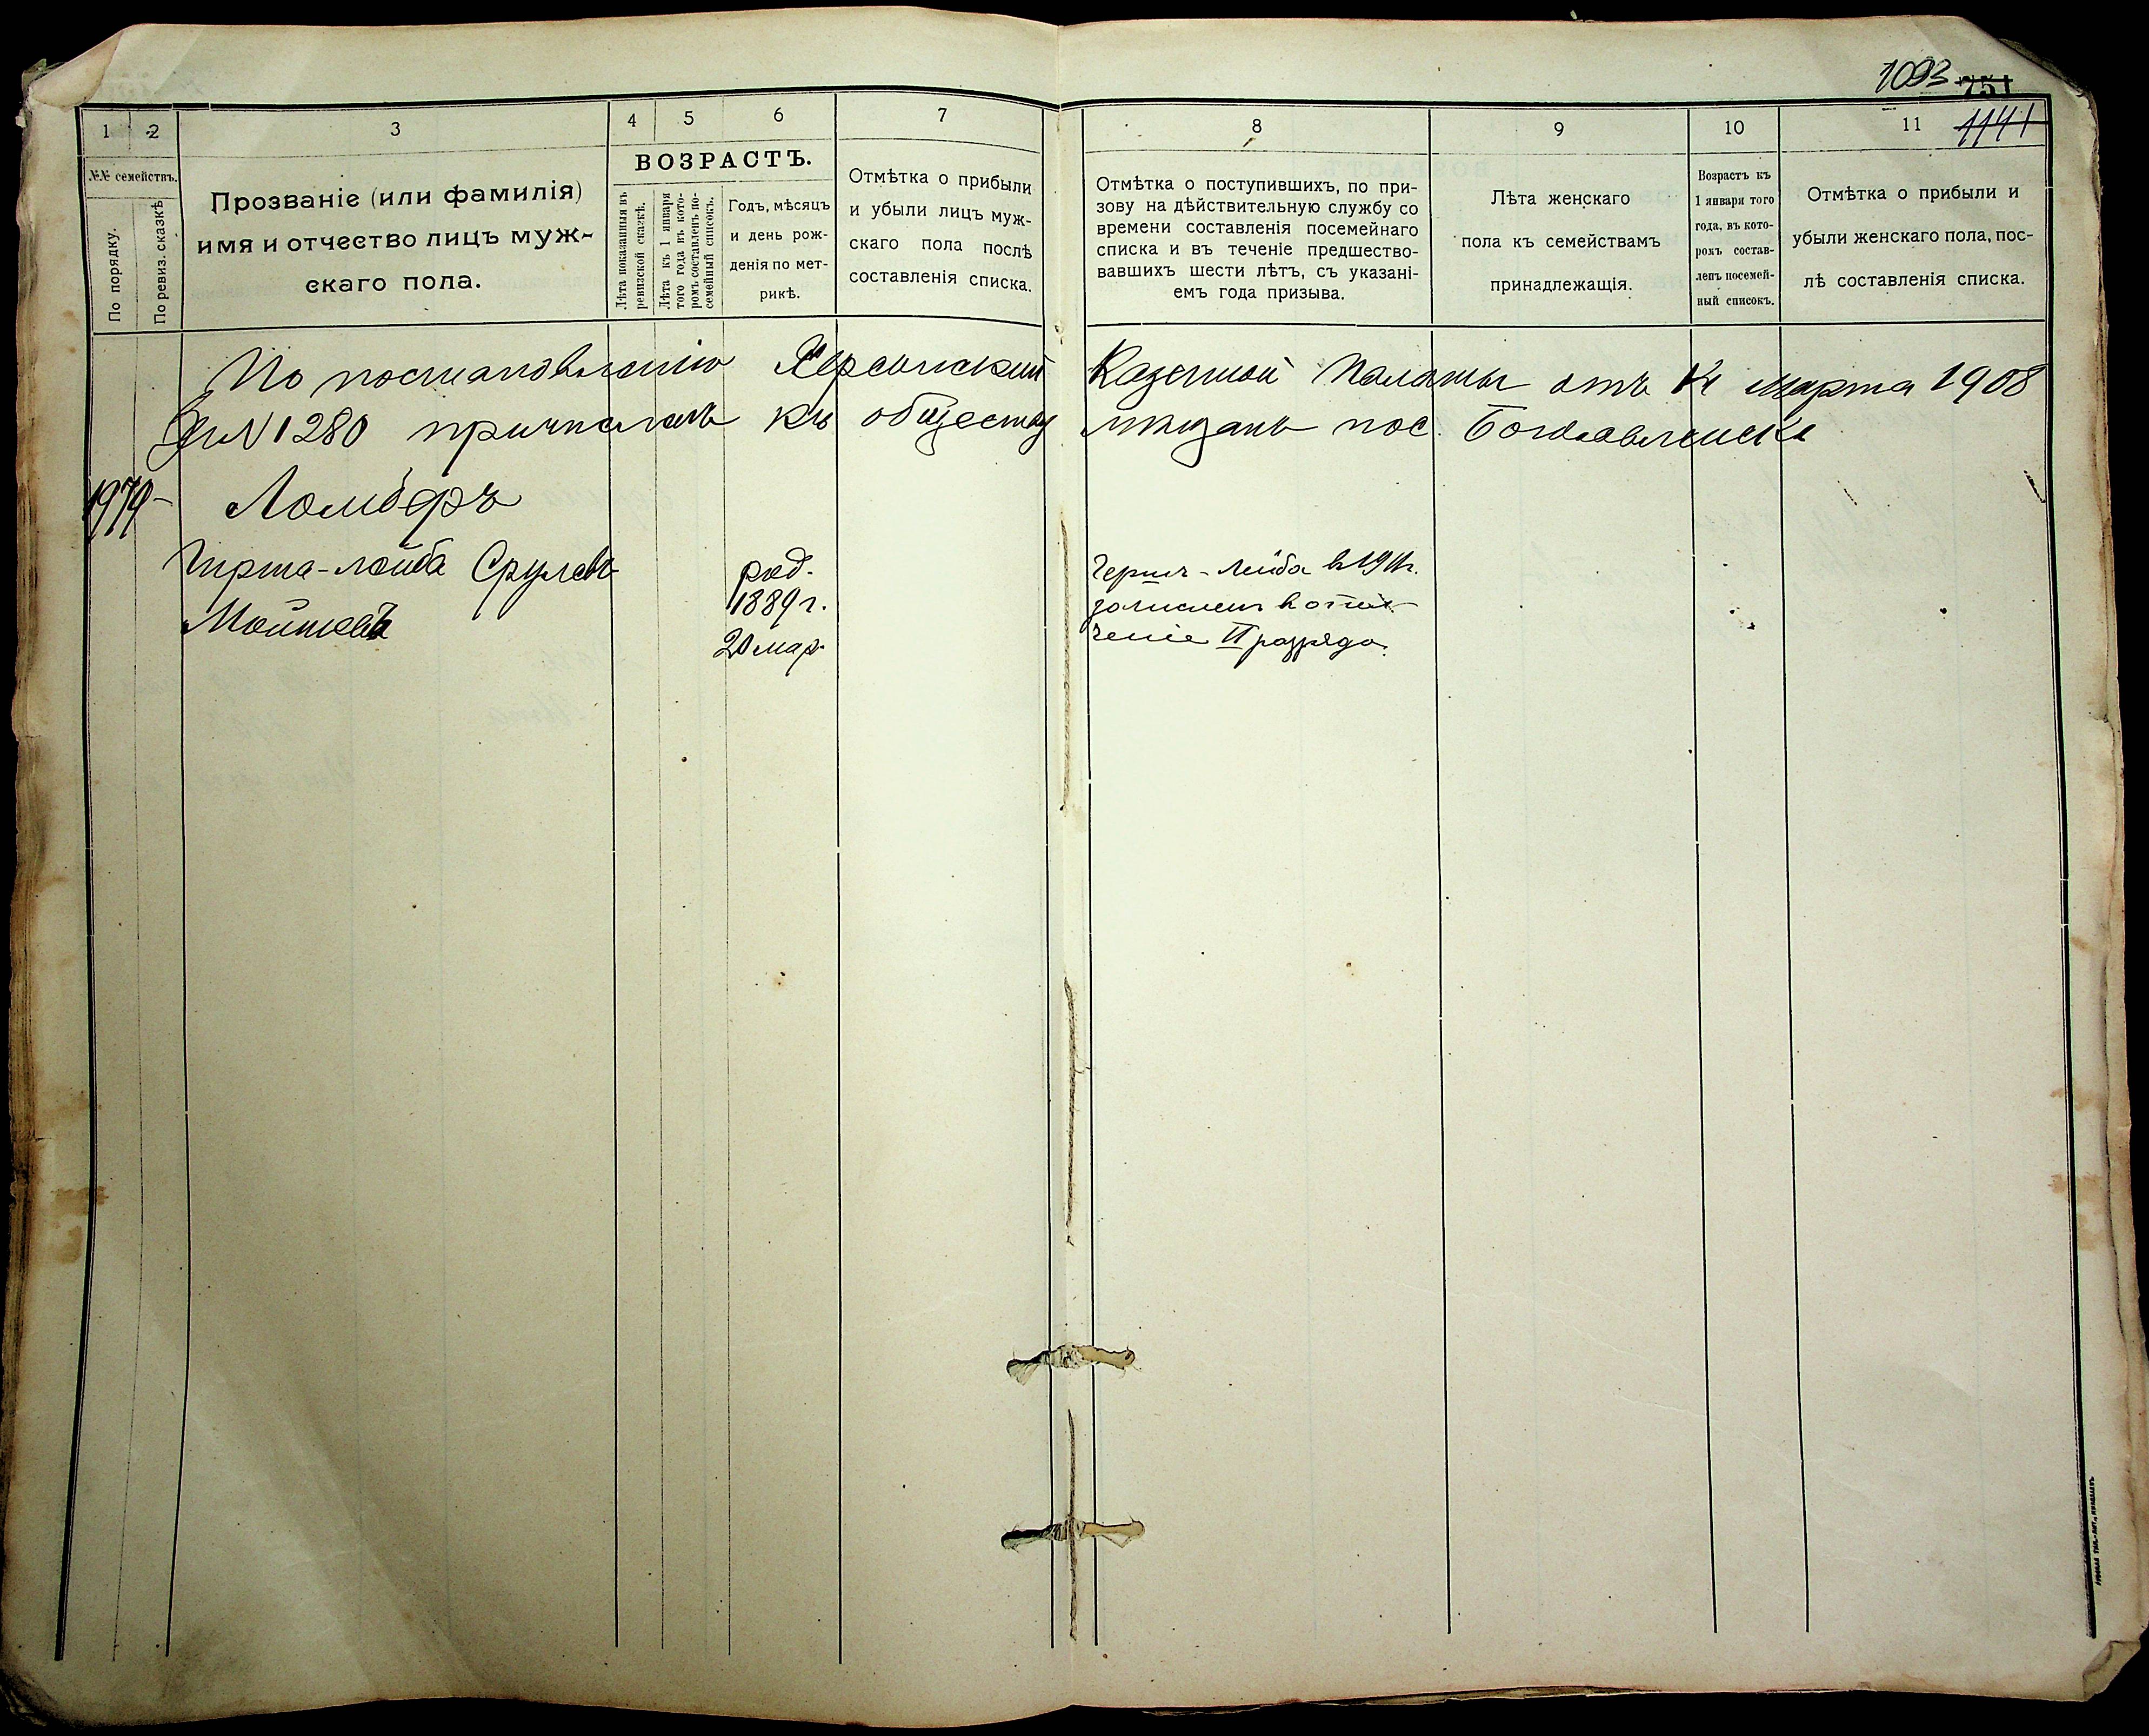 1093 751
1141
1 2 3 4 5 6 7 8 9 10 11
№№ семействъ.
По порядку.
По ревиз. сказкѣ
Прозваніе (или фамилія)
имя и отчество лицъ муж-
скаго пола.
ВОЗРАСТЪ.
Лѣта показанныя въ
ревизской сказкѣ.
Лѣта къ 1 января
того года въ кото-
ромъ составленъ по-
семейный списокъ.
Годъ, мѣсяцъ
и день рож-
денія по мет-
рикѣ.
Отмѣтка о прибыли
и убыли лицъ муж-
скаго пола послѣ
составленія списка.
Отмѣтка о поступившихъ, по при-
зову на дѣйствительную службу со
времени составленія посемейнаго
списка и въ теченіе предшество-
вавшихъ шести лѣтъ, съ указані-
емъ года призыва.
Лѣта женскаго
пола къ семействамъ
принадлежащія.
Возрастъ къ
1 января того
года, въ кото-
ромъ состав-
ленъ посемей-
ный списокъ.
Отмѣтка о прибыли и
убыли женскаго пола, пос-
лѣ составленія списка.
По постановленію Херсонской Казенной Палаты отъ марта 1908
№ 1280 причисленъ къ обществу мѣщанъ пос. Богоявленска
1979 Ломберъ
Гирша-лейба Срулевъ
Мойшевъ
род.
1889 г.
20 мар.
Гершъ-Лейба в 1911г.
зачисленъ в опол-
ченіе II разряда.